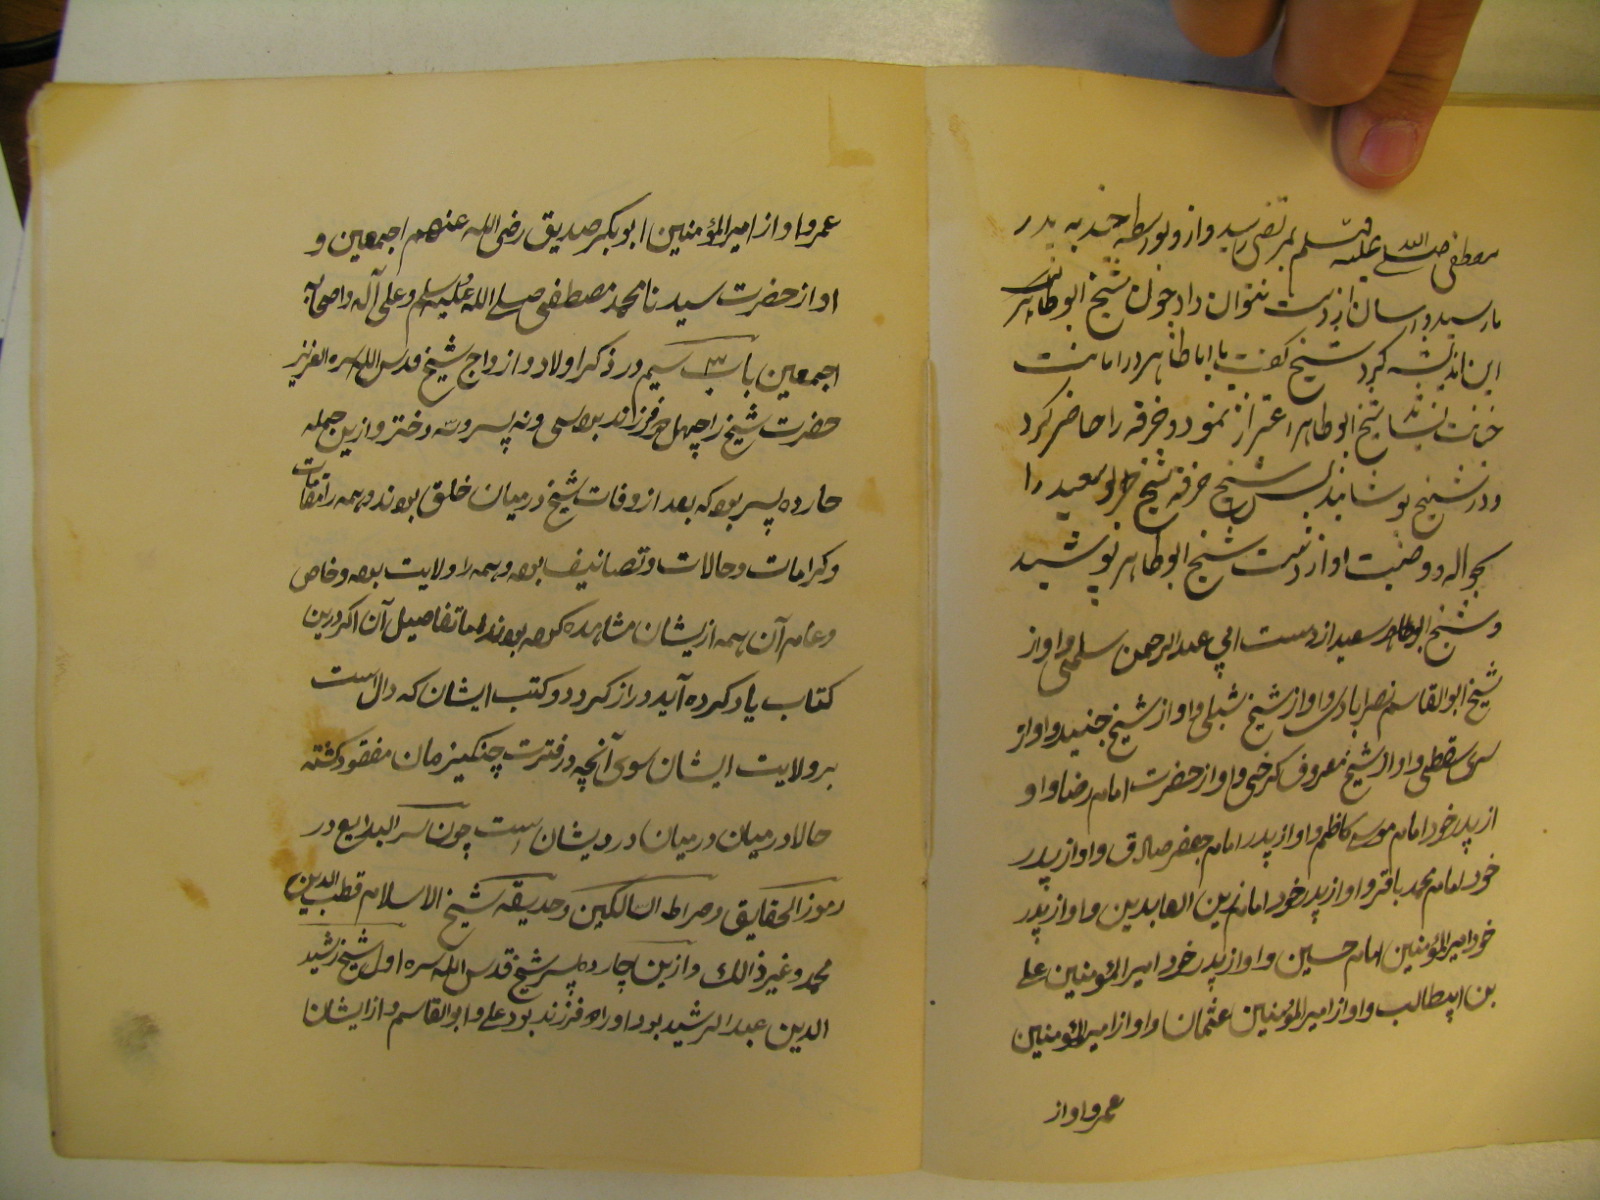 مصطفی صلی الله علیه وسلم بمرتضی رسید و ازو بواسطه چند به پدر
ما رسید و ارسان از دست نتوان داد چون شیخ ابو طاهر
این اندیشه کرد شیخ گفت بابا طاهر در امانت
خیانت نباشد شیخ ابو طاهر اعتراز نمود و خرقه را حاضر کرد
و در شیخ پوشانید پس شیخ خرقه شیخ ابو سعید را
بحواله و وصیت او از دست شیخ ابو طاهر پوشید
و شیخ ابو سعید از دست ابی عبدالرحمن سلمی و او از
شیخ ابوالقاسم نصرابادی و او از شیخ شبلی و او از شیخ جنید و او از
سری سقطی و او از شیخ معروف کرخی و او از حضرت امام رضا و او
از پدر خود امام موسی کاظم و او از پدر امام جعفر صادق و او از پدر
خود امام محمد باقر و او از پدر خود امام زین العابدین و او از پدر
خود امیرالمؤمنین امام حسین و او از پدر خود امیرالمؤمنین علی
بن ابیطالب و او از امیرالمؤمنین عثمان و او از امیرالمؤمنین
عمر و او از
عمر و او از امیرالمؤمنین ابوبکر صدیق رضی الله عنهم اجمعین و
او از حضرت سیدنا محمد مصطفی صلی الله علیه وسلم و علی آله و اصحابه
اجمعین باب سیم در ذکر اولاد و ازواج شیخ قدس الله سره العزیز
حضرت شیخ را چهل و فرزند بود سی و نه پسر و سه دختر و ازین جمله
چارده پسر بود که بعد از وفات شیخ در میان خلق بودند و همه را مقامات
و کرامات و حالات و تصانیف بوده و همه را ولایت بوده و خاص
و عام آن همه از یشان مشاهده کرده بودند اما تفاصیل آن اگر درین
کتاب یاد کرده آید دراز گردد و کتب ایشان که دال است
بر ولایت ایشان سوی آنچه در فترت چنکیز مان مفقود گشته
حالا در میان در میان درویشان است چون سر البدایع در
رموز الحقایق و صراط السالکین و حدیقه شیخ الاسلام قطب الدین
محمد و غیر ذالک و ازین چارده پسر شیخ قدس الله سره اول شیخ رشید
الدین عبدالرشید بود او را فرزند بود علی و ابوالقاسم و از ایشان